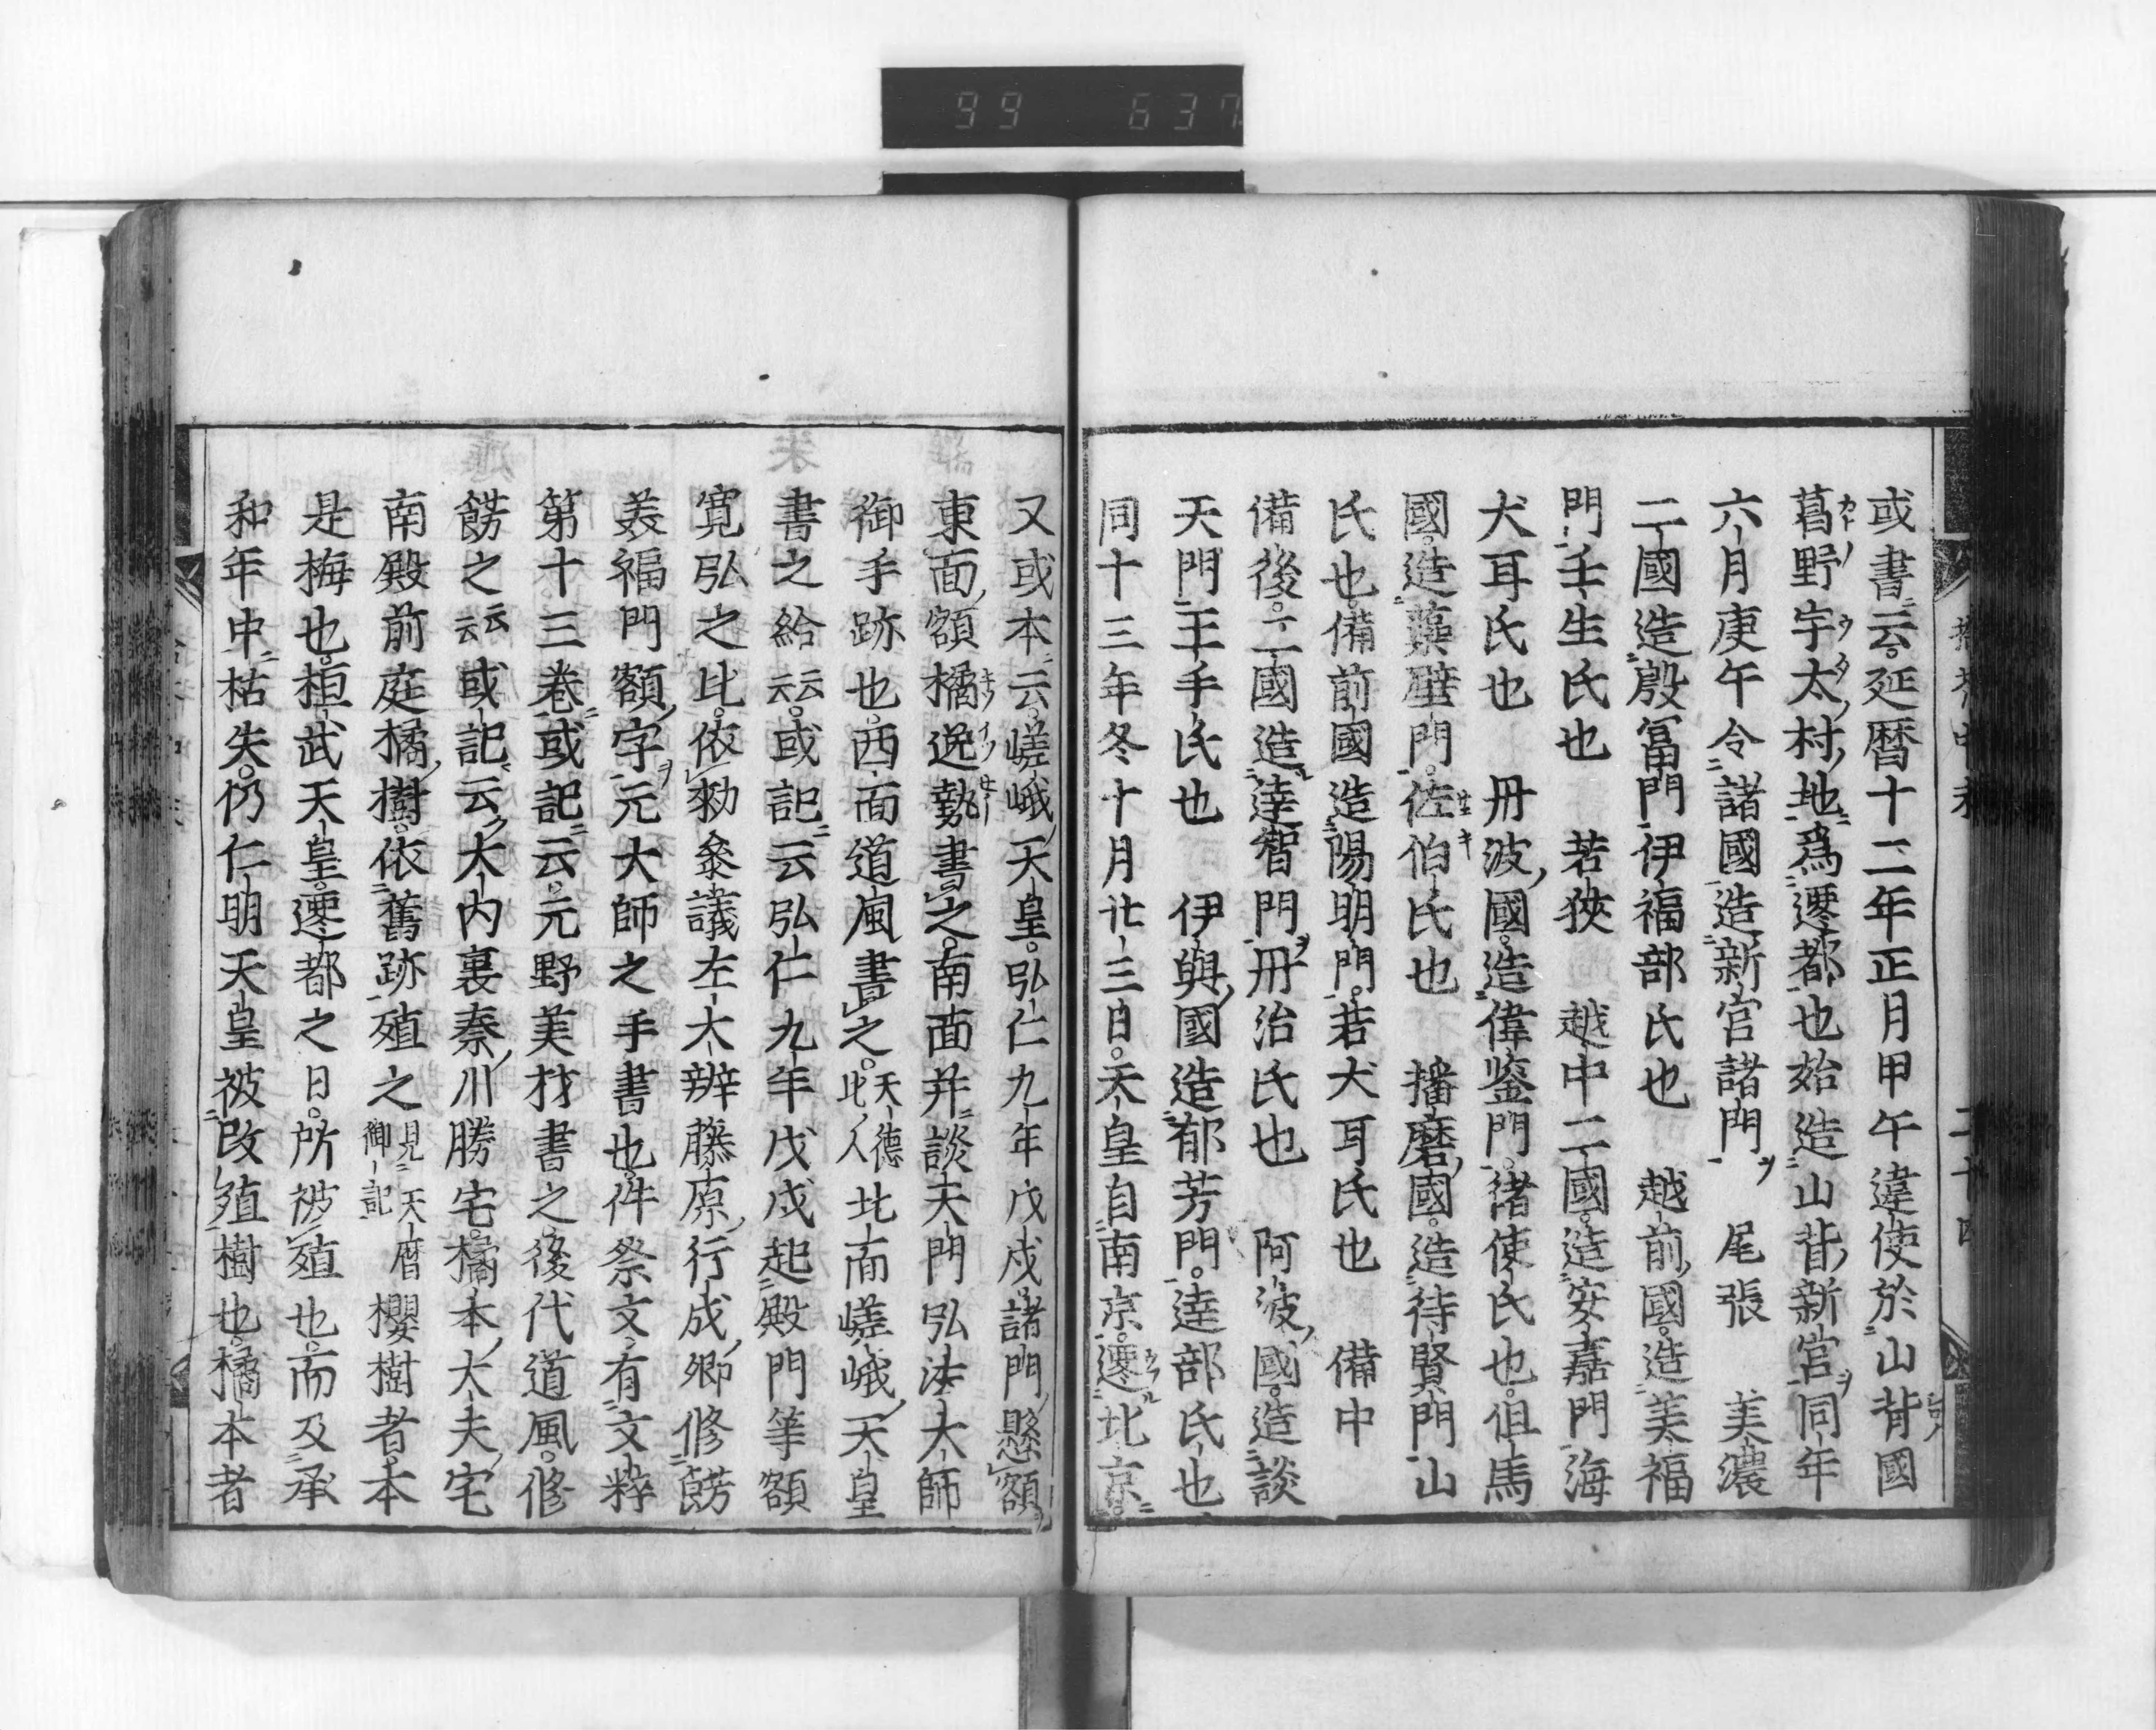 99 637
或書云延暦十二年正月甲午違使於山背國
葛野宇太村地爲遷都也始造山背新宮同年
六月庚午令諸國造新宮諸門 尾張 美濃
二國造殷冨門伊福部氏也 越前國造美福
門壬生氏也 若狹 越中二國造安嘉門海
犬耳氏也 丹波國造偉鑒門猪使氏也但馬
國造藻壁門佐伯氏也 播磨國造待賢門山
氏也備前國造陽明門若犬耳氏也 備中
備後二國造達智門丹治氏也 阿波國造談
天門王手氏也 伊與國造郁芳門達部氏也
同十三年冬十月廿三日天皇自南京遷北京
又或本云嵯峨天皇弘仁九年戊戌諸門懸額
東面額橘逸勢書之南面并談天門弘法大師
御手跡也西面道風書之天德此人北面嵯峨天皇
書之給云云或記云弘仁九年戊戌起殿門等額
寛弘之比依勑叅議左大辨藤原行成卿修餝
美福門額字元大師之手書也件祭文有文粹
第十三卷或記云元野美材書之後代道風修
餝之云云或記云大内裏秦川勝宅橘本大夫宅
南殿前庭橘樹依舊跡殖之見天暦御記櫻樹者本
是梅也桓武天皇遷都之日所被殖也而及承
和年中枯失仍仁明天皇被改殖樹也橘本者